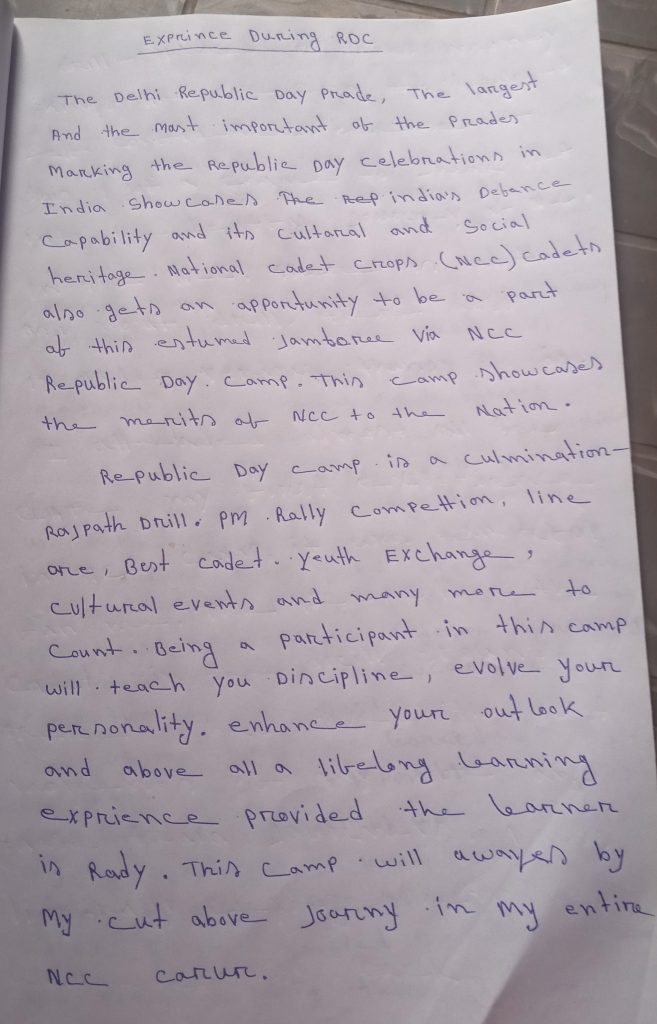 Exprince During RDC
The Delhi Republic Day Prade, The largest
And the most important of the Prades
Marking the Republic Day celebrations in
India Showcases The Rep india's Defance
Capability and its Cultaral and Social
heritage. National Cadet Crops (NCC) Cadets
also gets an opportunity to be a part
of this estumed Jamboree Via NCC
Republic Day. Camp. This camp showcases
the merits of NCC to the Nation.
Republic Day camp is a culmination-
Rajpath Drill. PM Rally Compettion, line
are, Best cadet. Yeuth Exchange,
cultural events and many more to
Count. Being a participant in this camp
will teach you Discipline, evolve your
personality. enhance your outlook
and above all a lifelong learning
exprience provided the learner
is Rady. This Camp will awayes by
My cut above Joarny in my entire
NCC carrur.